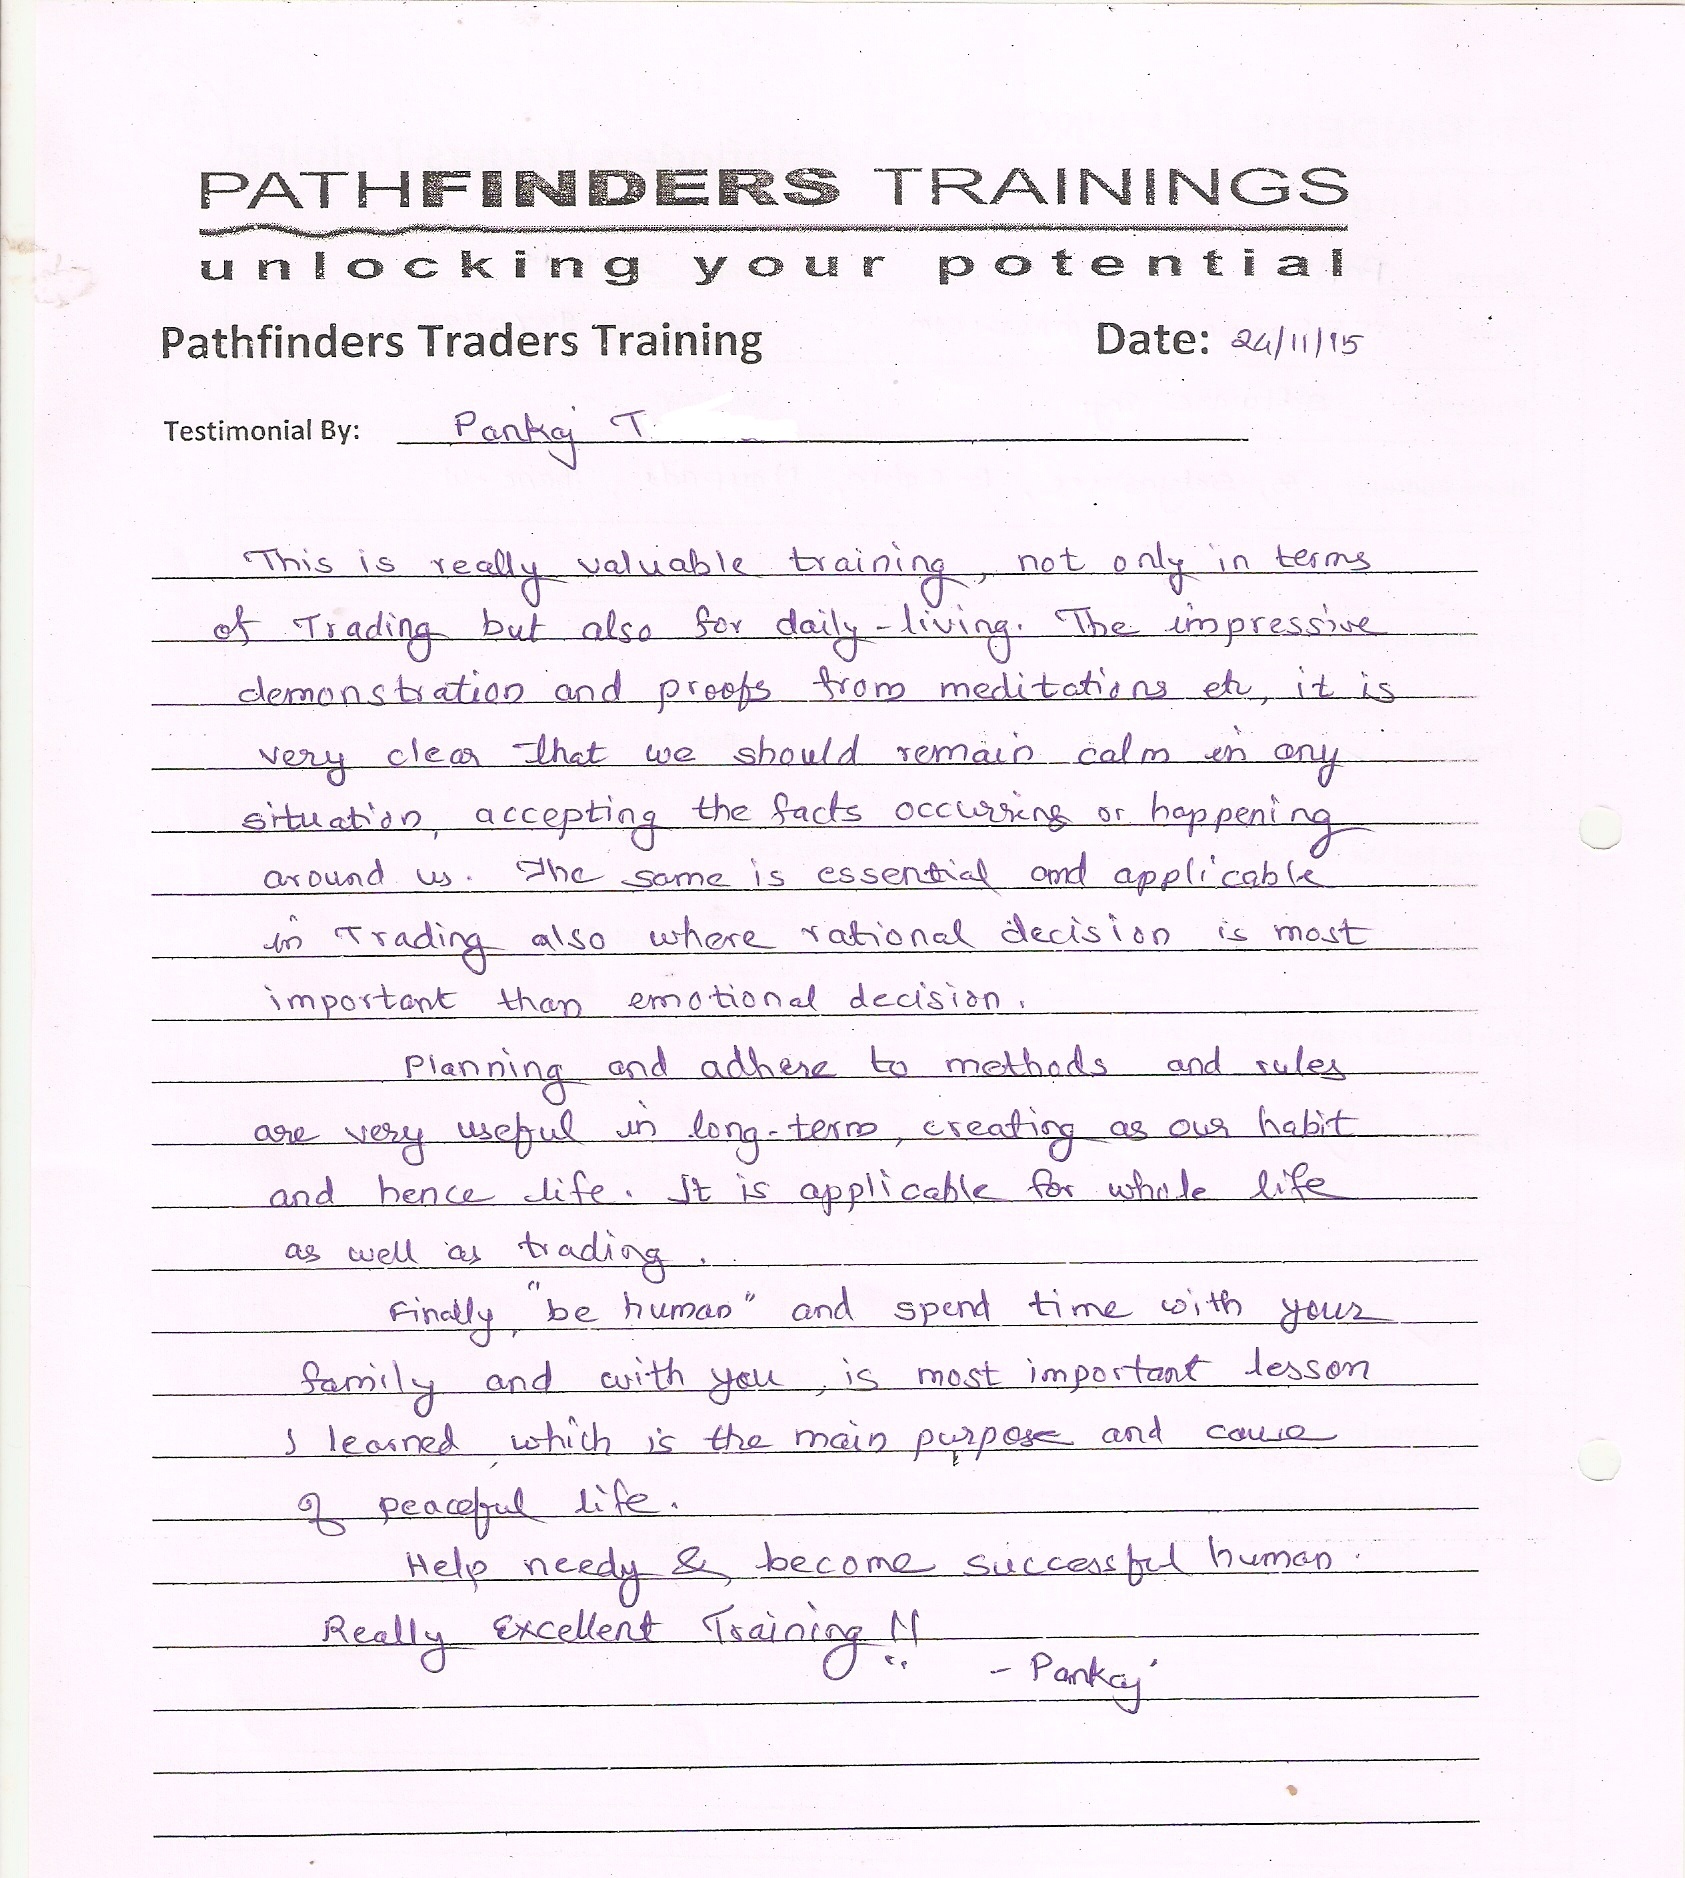 PATHFINDERS TRAININGS
unlocking your potential
Pathfinders Traders Training Date: 24/11/15
Testimonial By: Pankaj T
This is really valuable training, not only in terms
of Trading but also for daily-living. The impressive
demonstration and proofs from meditations etc, it is
very clear that we should remain calm in any
situation, accepting the facts occurring or happening
around us. The same is essential and applicable
in Trading also where rational decision is most
important than emotional decision.
Planning and adhere to methods and rules
are very useful in long-term, creating as our habit
and hence life. It is applicable for whole life
as well as trading.
Finally, "be human" and spend time with your
family and with you, is most important lesson
I learned which is the main purpose and cause
of peaceful life.
Help needy & become successful human.
Really Excellent Training !!
- Pankaj